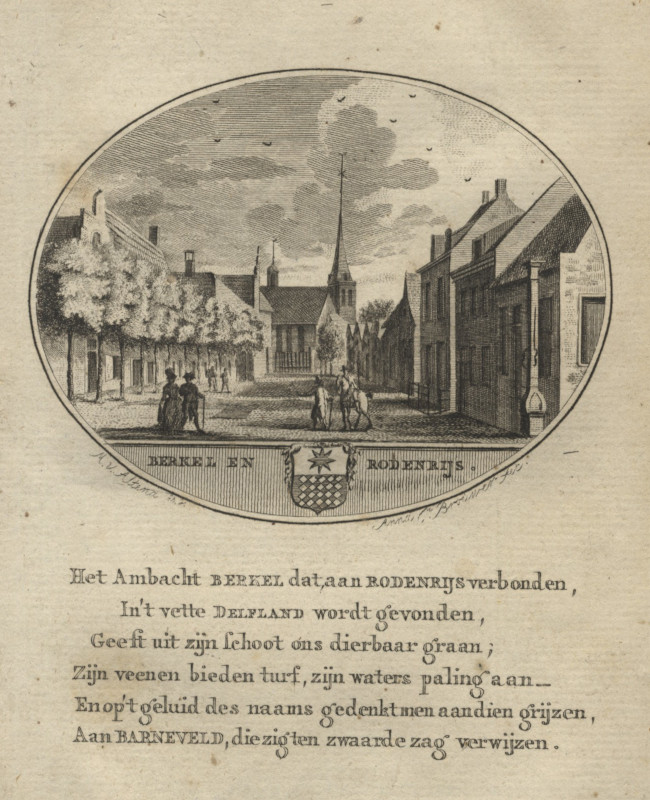 BERKEL EN RODENRIJS.
Het Ambacht BERKEL dat, aan RODENRIJS verbonden,
In't vette DELFLAND wordt gevonden,
Geeft uit zijn schoot ons dierbaar graan;
Zijn veenen bieden turf, zijn waters paling aan—
En op't geluid des naams gedenkt men aan dien grijzen,
Aan BARNEVELD, die zig ten zwaarde zag verwijzen.